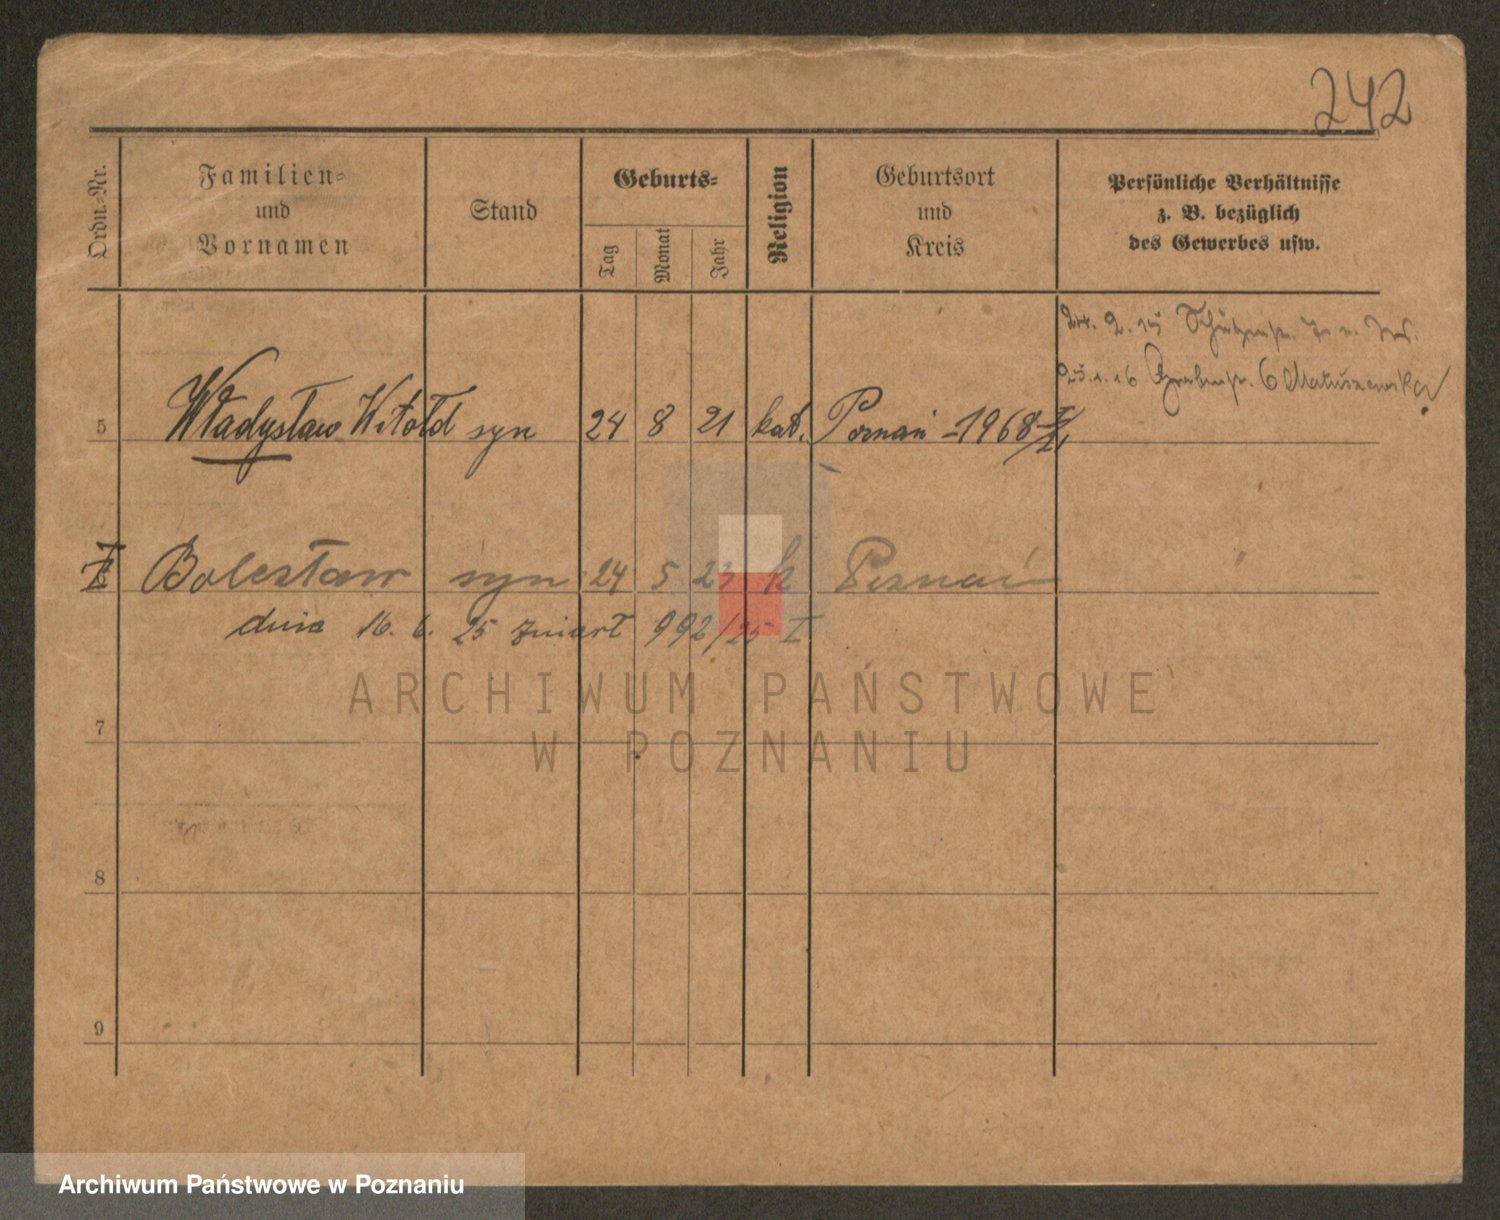 242
Ordn.-Nr.
Familien-
und
Vornamen
Stand
Geburts-
Tag
Monat
Jahr
Religion
Geburtsort
und
Kreis
Persönliche Verhältnisse
z. B. bezüglich
des Gewerbes usw.
24. 2. 15 Schützenstr.
25. 1. 16 Grabenstr. 6 Matuszewska
5 Władysław Witold syn 24 8 21 kat. Poznań -1968
Bolesław syn 24 5 23 k Poznań
dnia 16. 6. 25 zmarł 992/25 I
ARCHIWUM PAŃSTWOWE
W POZNANIU
7
8
9
Archiwum Państwowe w Poznaniu